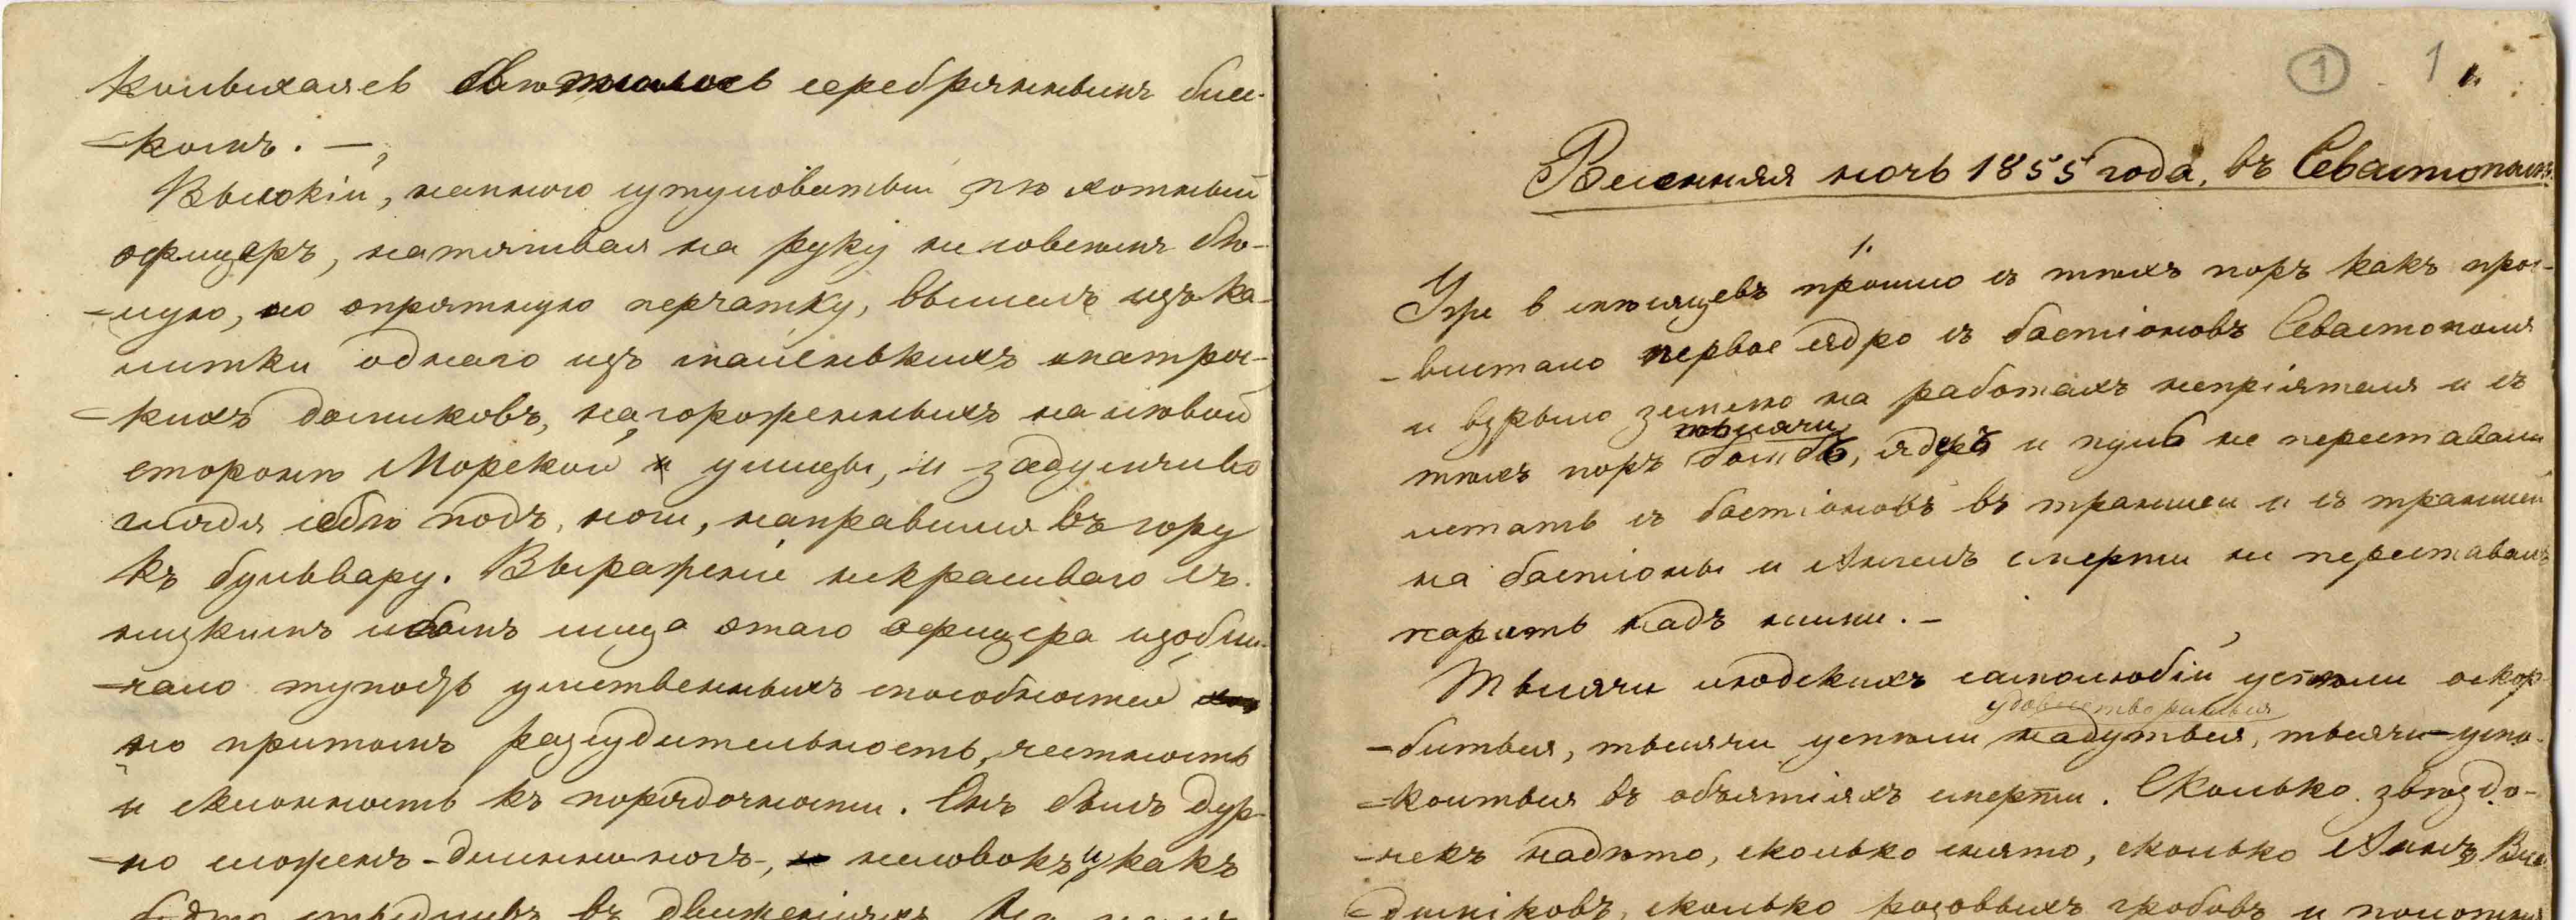 колыхаясь свѣтилось серебрянымъ блес-
-комъ. —
Высокій, немного сутуловатый пѣхотный
офицеръ, натягивая на руку не совсѣмъ бѣ-
-лую, но опрятную перчатку, вышелъ изъ ка-
литки однаго изъ маленькихъ матрос-
-кихъ домиковъ, нагороженныхъ на лѣвой
сторонѣ Морской улицы, и задумчиво
глядя себѣ подъ ноги, направился въ гору
къ бульвару. Выраженіе некрасиваго съ
низкимъ лбомъ лица этаго офицера изобли-
-чало тупость умственныхъ способностей
но притомъ разсудительность, честность
и склонность къ порядочности. Онъ былъ дур-
-но сложенъ - длинноногъ -, неловокъ и какъ
будто стыдливъ въ движеніяхъ. На немъ
1 1
Весенняя ночь 1855 года, въ Севастополѣ.
1.
Уже 6 мѣсяцевъ прошло съ тѣхъ поръ какъ прос-
-вистало первое ядро съ бастіоновъ Севастополя
и взрыло землю на работахъ непріятеля и съ
тысячи
тѣхъ поръ бомбъ, ядеръ и пуль не переставали
летать съ бастіоновъ въ траншеи и съ траншей
на бастіоны и Ангелъ смерти не переставалъ
парить надъ ними. —
Тысячи людскихъ самолюбій успѣли оскор-
удовлетвориться
-биться, тысячи успѣли надуться, тысячи - успо-
-коиться въ объятіяхъ смерти. Сколько звѣздо-
-чекъ надѣто, сколько снято, сколько Аннъ, Вла-
-диміровъ, сколько розовыхъ гробовъ и полотня